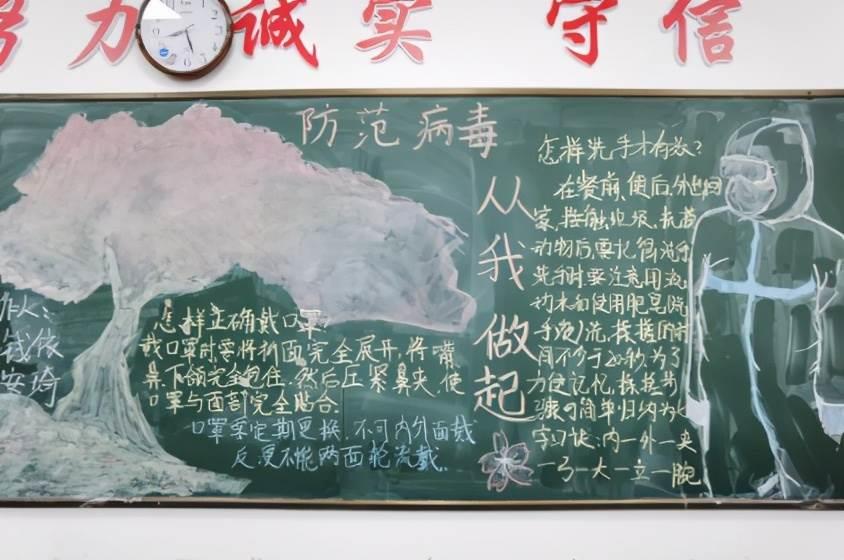 努力 诚实 守信
防范病毒
从我做起
作人:
钱依
安琦
怎样正确戴口罩
戴口罩时,要将折面完全展开,将嘴
鼻、下颌完全包住.然后压紧鼻夹,使
口罩与面部完全贴合.
口罩要定期更换,不可内外面戴
反,更不能两面轮流戴.
怎样洗手才有效?
在餐前、便后、外出回
家,接触垃圾、抚摸
动物后,要记得洗手
洗手时,要注意用流
动水和使用肥皂(洗
手液)洗,揉搓的时
间不少于20秒,为了
方便记忆,揉搓步
骤可简单归纳为七
字口诀:内一外一夹
一弓一大一立一腕